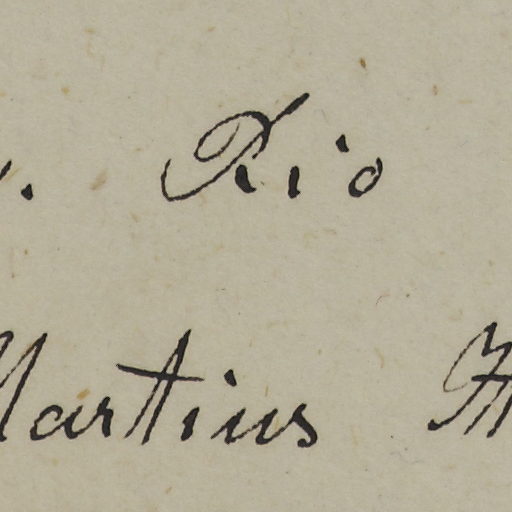 . Rio
Martius